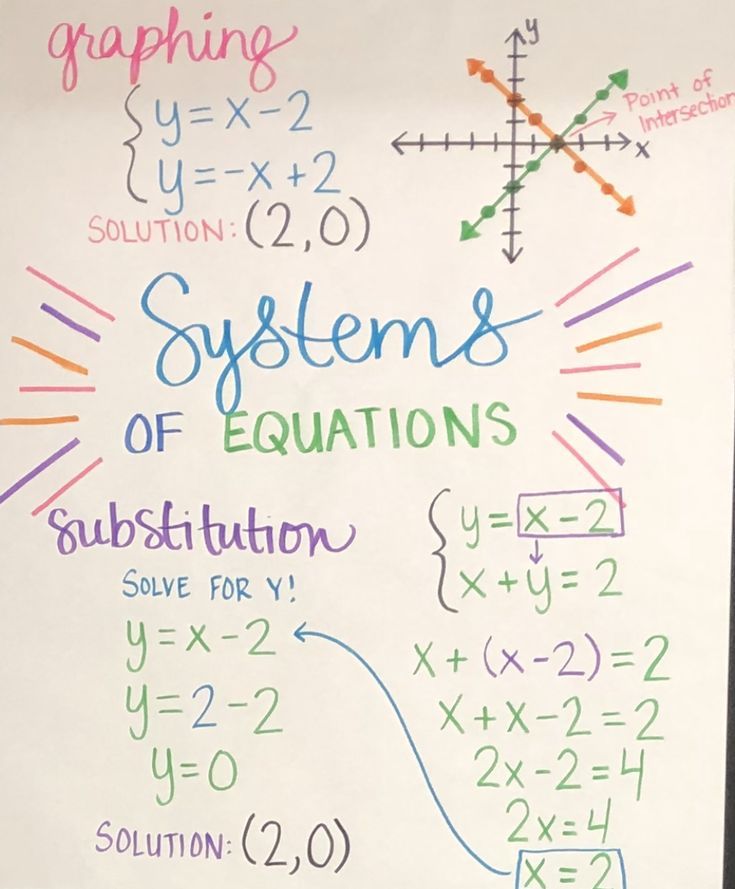 graphing
y=x-2
y=-x+2
SOLUTION: (2,0)
y
x
Point of
Intersection
Systems
OF EQUATIONS
substitution
SOLVE FOR Y!
y=x-2
y=2-2
y=0
SOLUTION: (2,0)
y=x-2
x+y=2
x+(x-2)=2
x+x-2=2
2x-2=4
2x=4
x=2